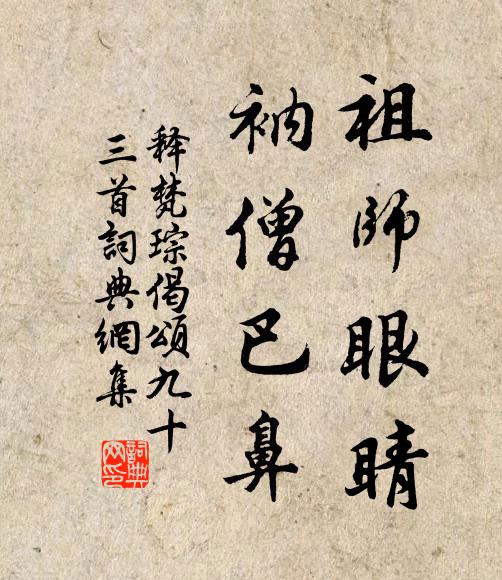 祖師眼睛
衲僧巴鼻
释梵琮偈頌九十
三首詞典網集
詞典網印